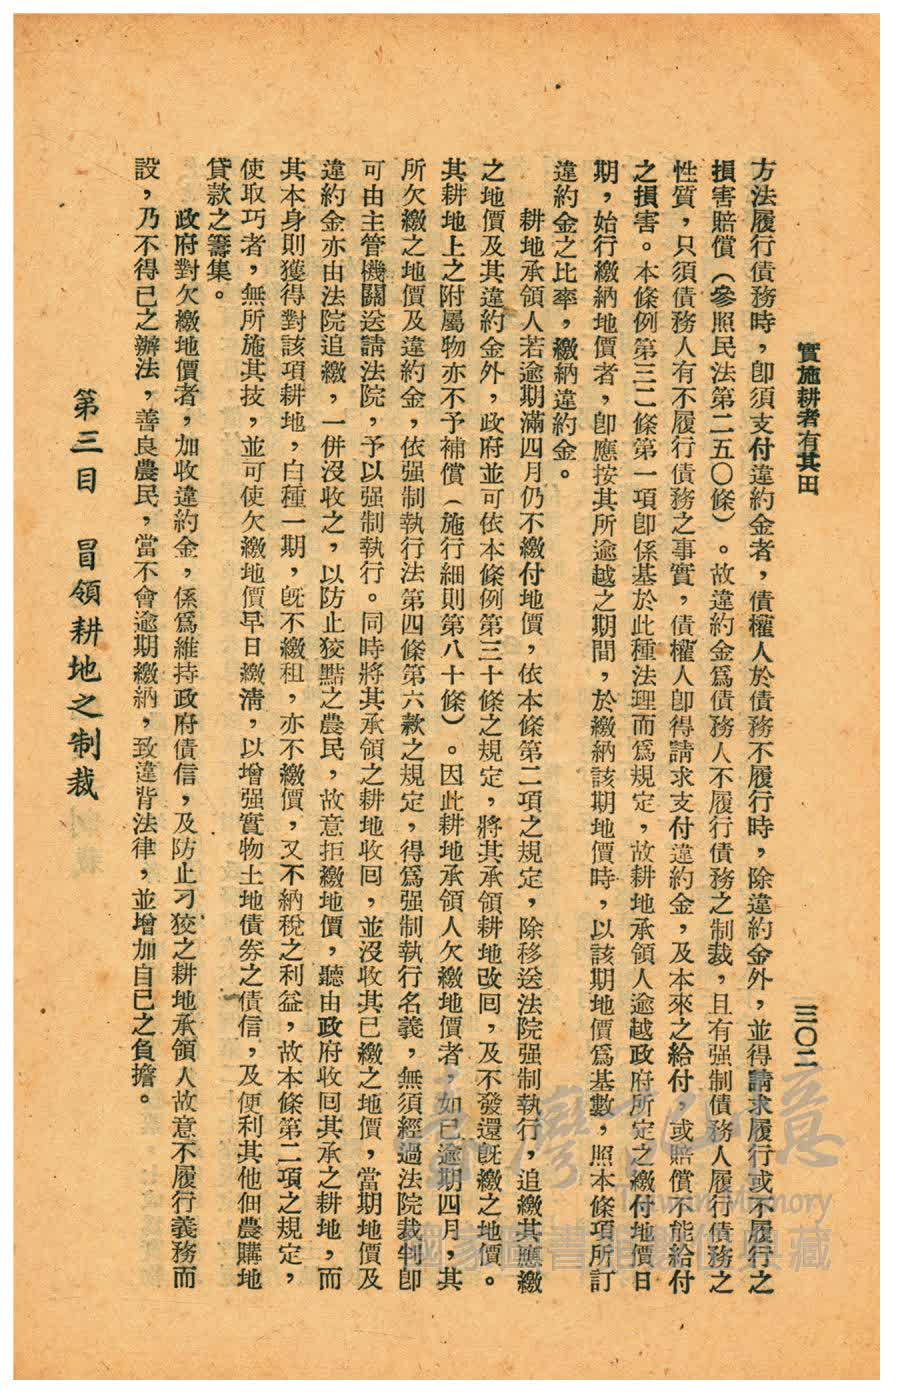 實施耕者有其田
三〇二
方法履行債務時，卽須支付違約金者，債權人於債務不履行時，除違約金外，並得請求履行或不履行之
損害賠償（參照民法第二五〇條）。故違約金爲債務人不履行債務之制裁，且有强制債務人履行債務之
性質，只須債務人有不履行債務之事實，債權人卽得請求支付違約金，及本來之給付，或賠償不能給付
之損害。本條例第三二條第一項卽係基於此種法理而爲規定，故耕地承領人逾越政府所定之繳付地價日
期，始行繳納地價者，卽應按其所逾越之期間，於繳納該期地價時，以該期地價爲基數，照本條項所訂
違約金之比率，繳納違約金。
耕地承領人若逾期滿四月仍不繳付地價，依本條第二項之規定，除移送法院强制執行，追繳其應繳
之地價及其違約金外，政府並可依本條例第三十條之規定，將其承領耕地改回，及不發還旣繳之地價。
其耕地上之附屬物亦不予補償（施行細則第八十條）。因此耕地承領人欠繳地價者，如已逾期四月，其
所欠繳之地價及違約金，依强制執行法第四條第六款之規定，得爲强制執行名義，無須經過法院裁判卽
可由主管機關送請法院，予以强制執行。同時將其承領之耕地收回，並沒收其已繳之地價，當期地價及
違約金亦由法院追繳，一併沒收之，以防止狡黠之農民，故意拒繳地價，聽由政府收回其承之耕地，而
其本身則獲得對該項耕地，白種一期，旣不繳租，亦不繳價，又不納稅之利益，故本條第二項之規定，
使取巧者，無所施其技，並可使欠繳地價早日繳淸，以增强實物土地債券之債信，及便利其他佃農購地
貸款之籌集。
政府對欠繳地價者，加收違約金，係爲維持政府債信，及防止刁狡之耕地承領人故意不履行義務而
設，乃不得已之辦法，善良農民，當不會逾期繳納，致違背法律，並增加自己之負擔。
第三目　冒領耕地之制裁
臺灣記憶
Taiwan Memory
國家圖書館數位典藏